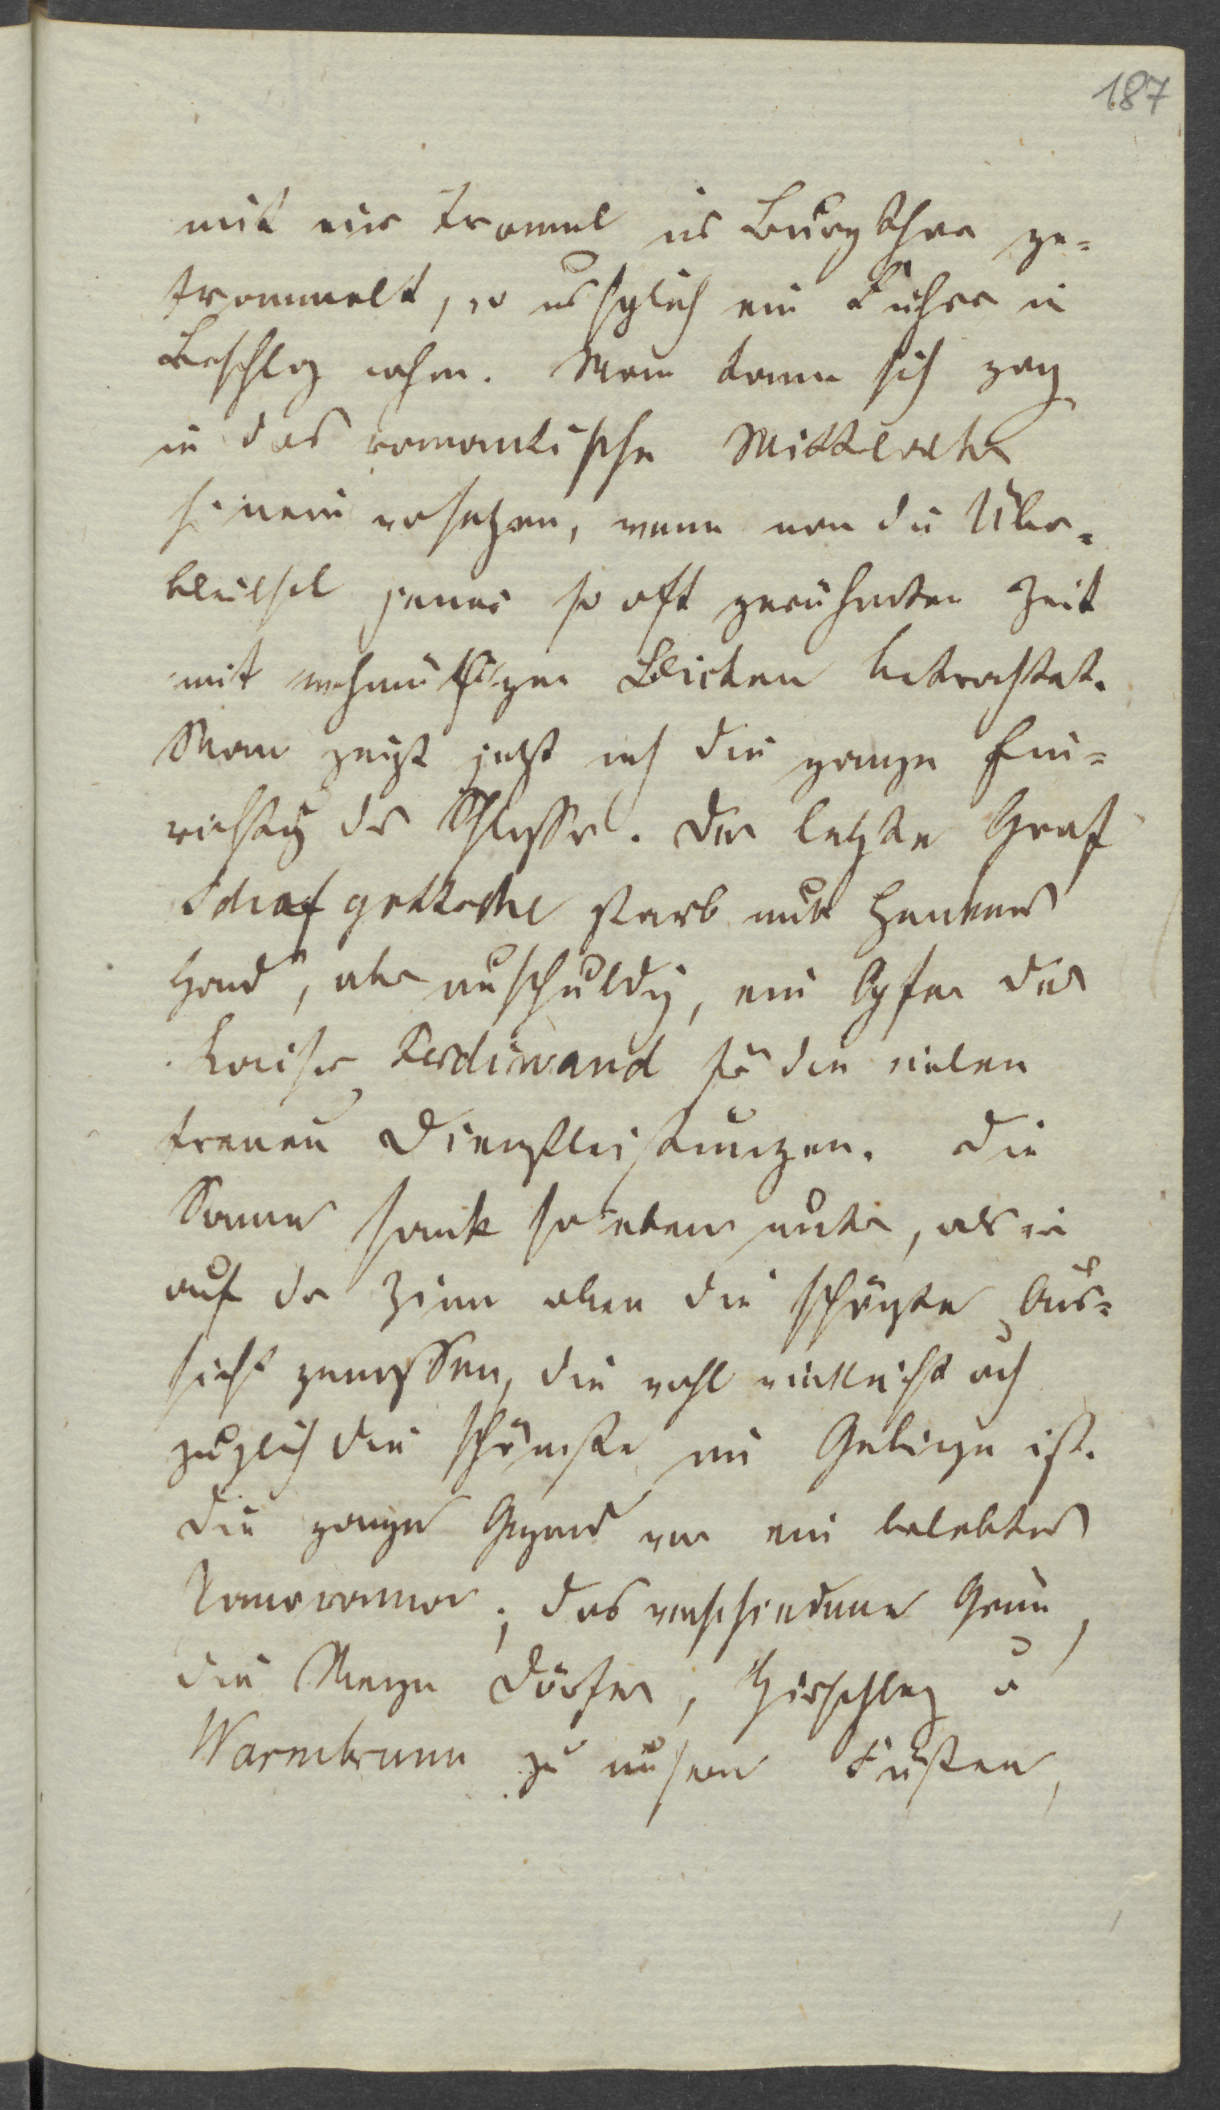 187
mit eine Tromel ins Burgthor ge=
trommelt, wo uns sgleich ein Führer in
Beschlag nahm. Man kann sich ganz
in das romantische Mittelalter
hinein versetzen, wenn man die Über=
bleibsel jener so oft gerühmten Zeit
mit wehmüthigen Blicken betrachtet.
Man zeigt jetzt noch die ganze Ein=
richtg des Schlosses. Der letzte Graf
Schafgottsche starb mit Henkers
Hand, aber unschuldig, ein Opfer des
Kaiser Ferdinand für die vielen
treuen Dienstleistungen. Die
Sonne sank so eben unter, als wir
auf der Zinne oben die schönste Aus=
sicht genossen, die wohl vielleicht auch
zugleich die schönste im Gebirge ist.
Die ganze Gegend war ein belebtes
Panorama; das verschiedene Grün,
die Menge Dörfer, Hirschberg u
Warmbrunn zu unsern Füßen,